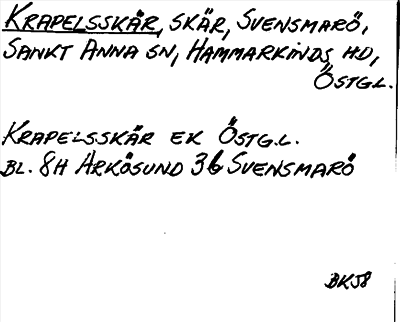 KRAPELSSKÄR, SKÄR, SVENSMARÖ,
SANKT ANNA SN, HAMMARKINDS HD,
ÖSTG.L.
KRAPELSSKÄR EK ÖSTG.L.
BL. 8H ARKÖSUND 36 SVENSMARÖ
BKJ8